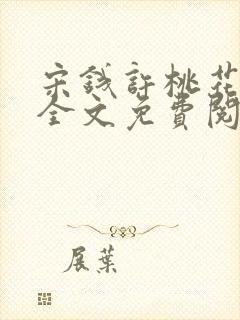 宋钱許桃花
全文免費閱
展葉